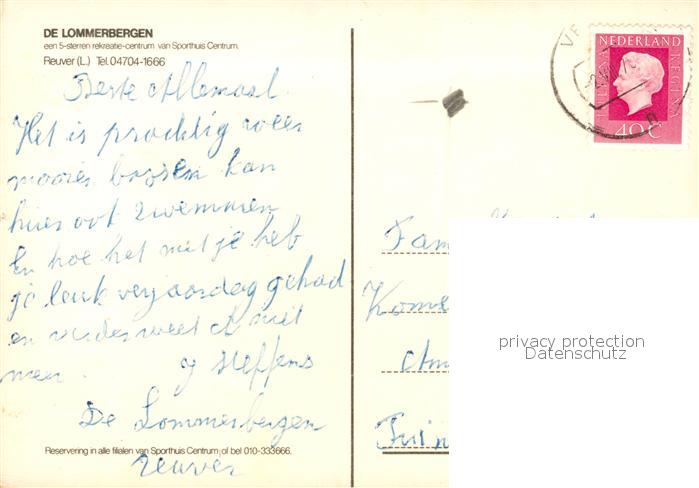 DE LOMMERBERGEN
een 5-sterren rekreatie-centrum van Sporthuis Centrum.
Reuver (L.) Tel. 04704-1666
Beste Allemaal
Het is prachtig weer
moores bossen kan
hier ook zwemmen
En hoe het met je heb
je leuk verjaardag gehad
en verder weet ik niet
meer.
J Steffens
De Lommerbergen
reuver
Reservering in alle filialen van Sporthuis Centrum of bel 010-333666.
NEDERLAND
40c
Fam
Kome
Am
privacy protection
Datenschutz